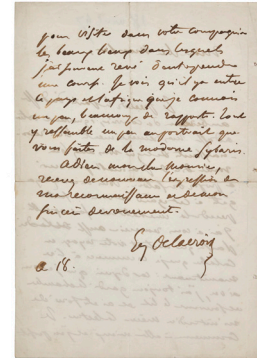 pour visiter dans votre compagnie
les beaux lieux dans lesquels
j'espérais rêver d'entreprendre
une course. Je vois qu'il y a entre
ce pays et l'afrique que je connais
un peu, beaucoup de rapports. Tout
y ressemble un peu au portrait que
vous faites de la moderne Sybaris.
Adieu mon cher Monsieur,
recevez de nouveau l'expression de
ma reconnaissance et de mon
sincère dévouement.
Eug Delacroix
ce 18.